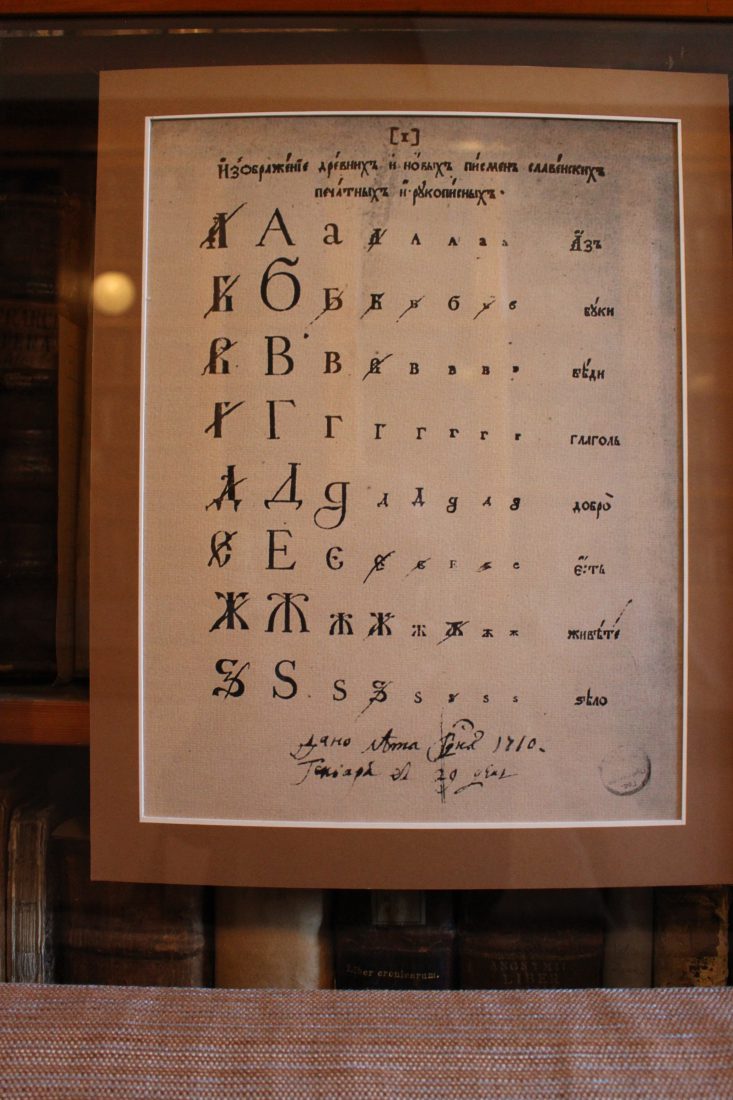 [1]
Изѡбраже́нїе дре́внихъ и҆ но́выхъ пи́сменъ славе́нскихъ
печа́тныхъ и҆ рꙋкопи́сныхъ.
А А а а А А а а А҆́зъ
Б Б Б Б Б Б Б Б бꙋ́ки
В В В В В В В В вѣ́ди
Г Г Г Г Г Г Г Г глаго́ль
Д Д д д Д д д д добро̀
Є Е Є Є Є Е Є Є є҆́сть
Ж Ж Ж Ж Ж Ж Ж Ж живѣ́те
Ѕ Ѕ Ѕ Ѕ Ѕ Ѕ Ѕ Ѕ ѕѣло̀
дано лѣта 1710.
Генваря 29 дня
Liber cronicarum.